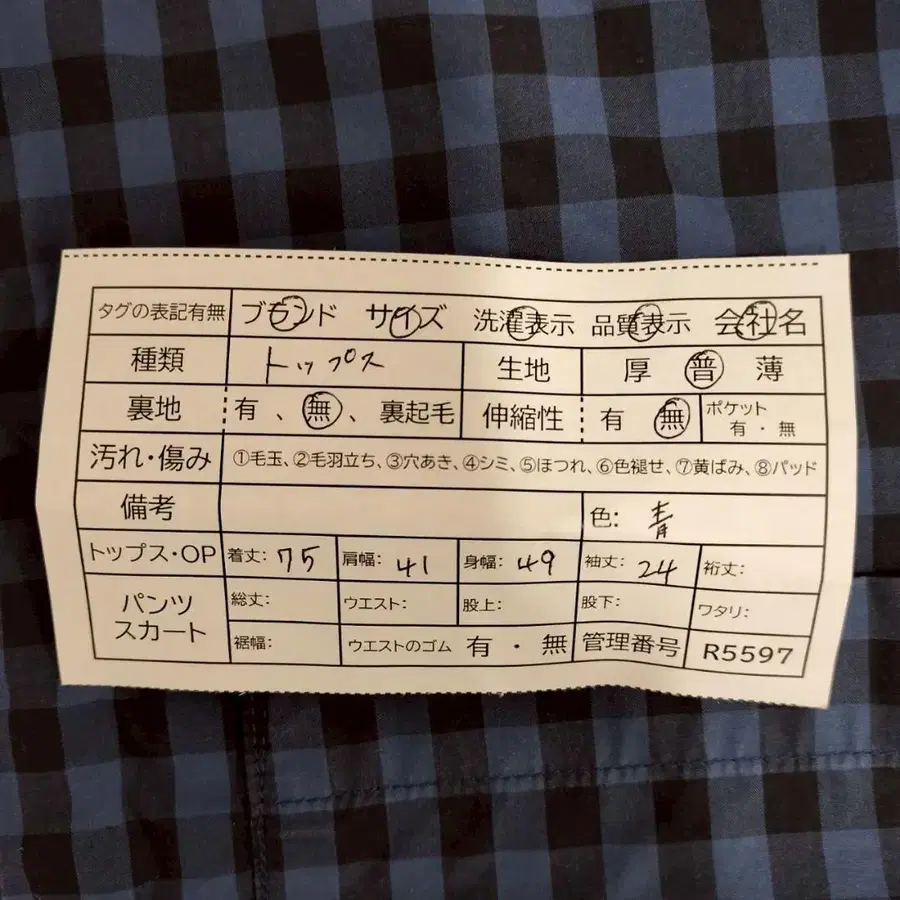 タグの表記有無 ブランド サイズ 洗濯表示 品質表示 会社名
種類 トップス 生地 厚 普 薄
裏地 有、無、裏起毛 伸縮性 有 無 ポケット 有・無
汚れ・傷み ①毛玉、②毛羽立ち、③穴あき、④シミ、⑤ほつれ、⑥色褪せ、⑦黄ばみ、⑧パッド
備考 色: 青
トップス・OP 着丈: 75 肩幅: 41 身幅: 49 袖丈: 24 裄丈:
パンツ スカート 総丈: ウエスト: 股上: 股下: ワタリ:
裾幅: ウエストのゴム 有・無 管理番号 R5597